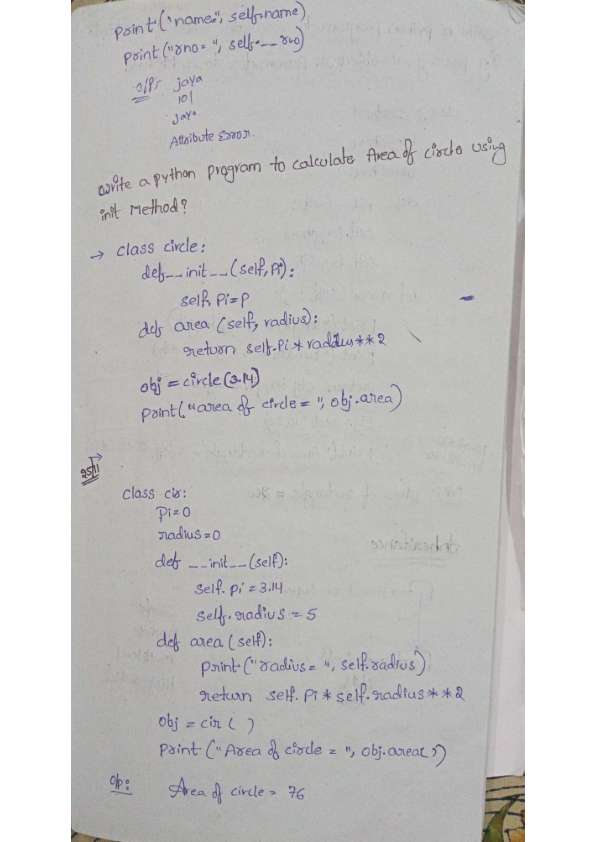 print("name:", self.name)
print("rno= ", self.__rno)
o/p:- java
101
java
Attribute Error.
write a python program to calculate Area of circle using
init method?
→ class circle:
def __init__(self, Pi):
self. Pi=P
def area (self, radius):
return self.Pi * raddius**2
obj = circle(3.14)
print("area of circle = ", obj.area)
→
class cir:
Pi=0
radius=0
def __init__(self):
self. Pi = 3.14
self.radius = 5
def area (self):
print("radius= ", self.radius)
return self. Pi * self.radius**2
obj = cir ( )
Print ("Area of circle = ", obj.area( ))
o/p: Area of circle = 76